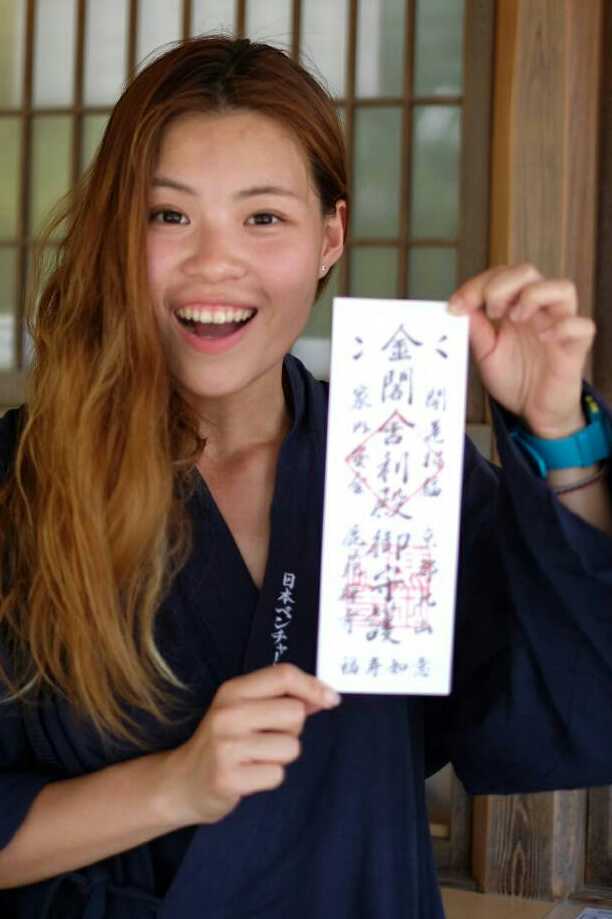 開運招福 京都北山
金閣舎利殿御守護
家内安全 鹿苑禅寺
福寿如意
日本ベンチャー